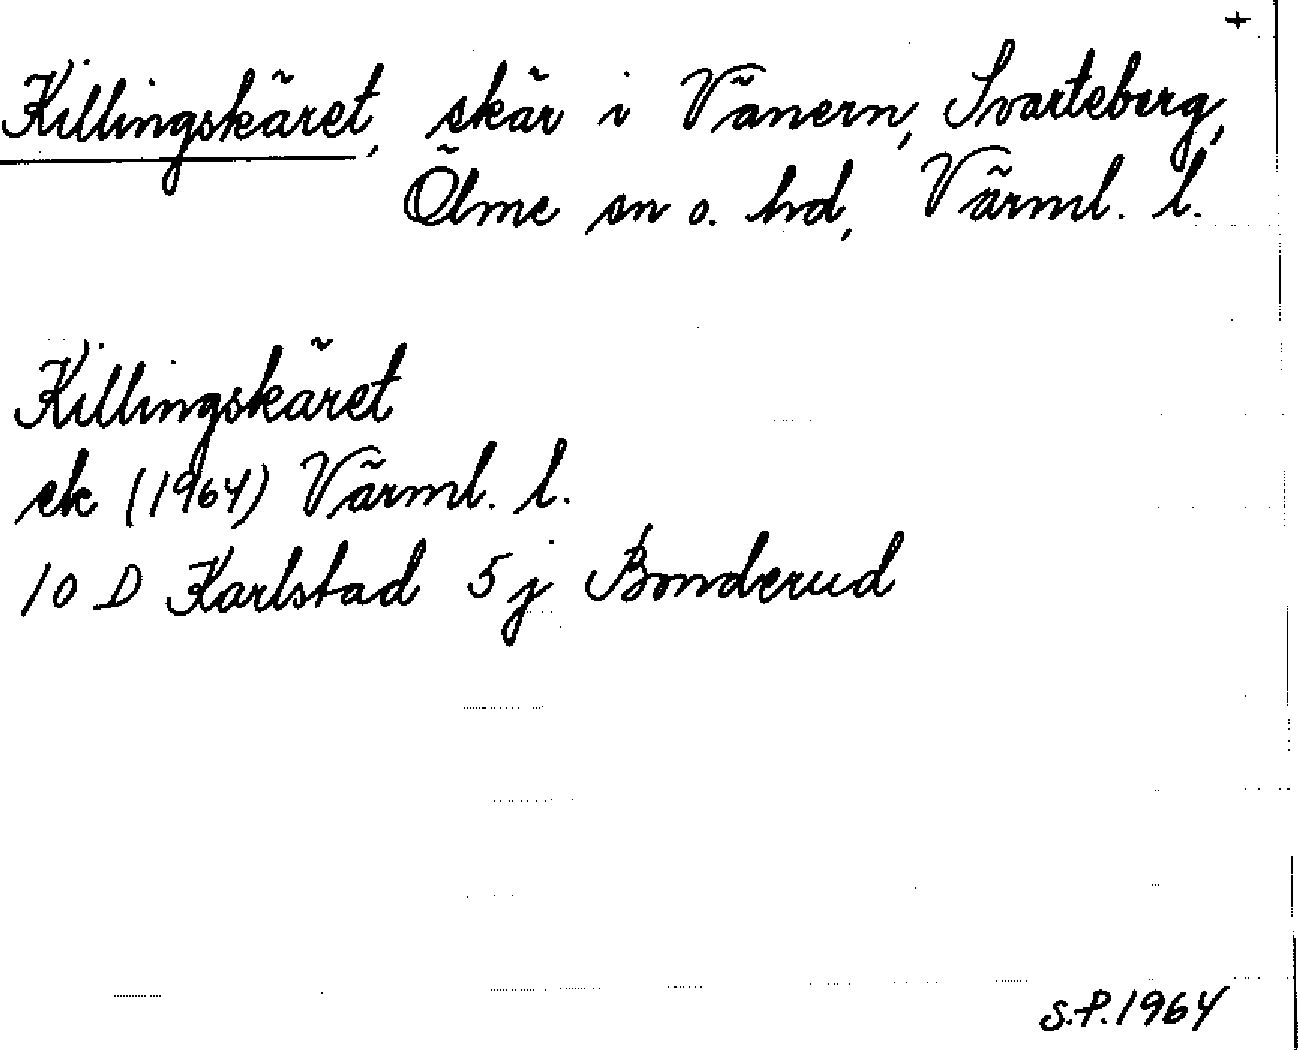 +
Killingskäret, skär i Vänern, Svarteberg,
Ölme sn o. hd, Värml. l.
Killingskäret
ek (1964) Värml. l.
10 D Karlstad 5 j Bonderud
S.P. 1964